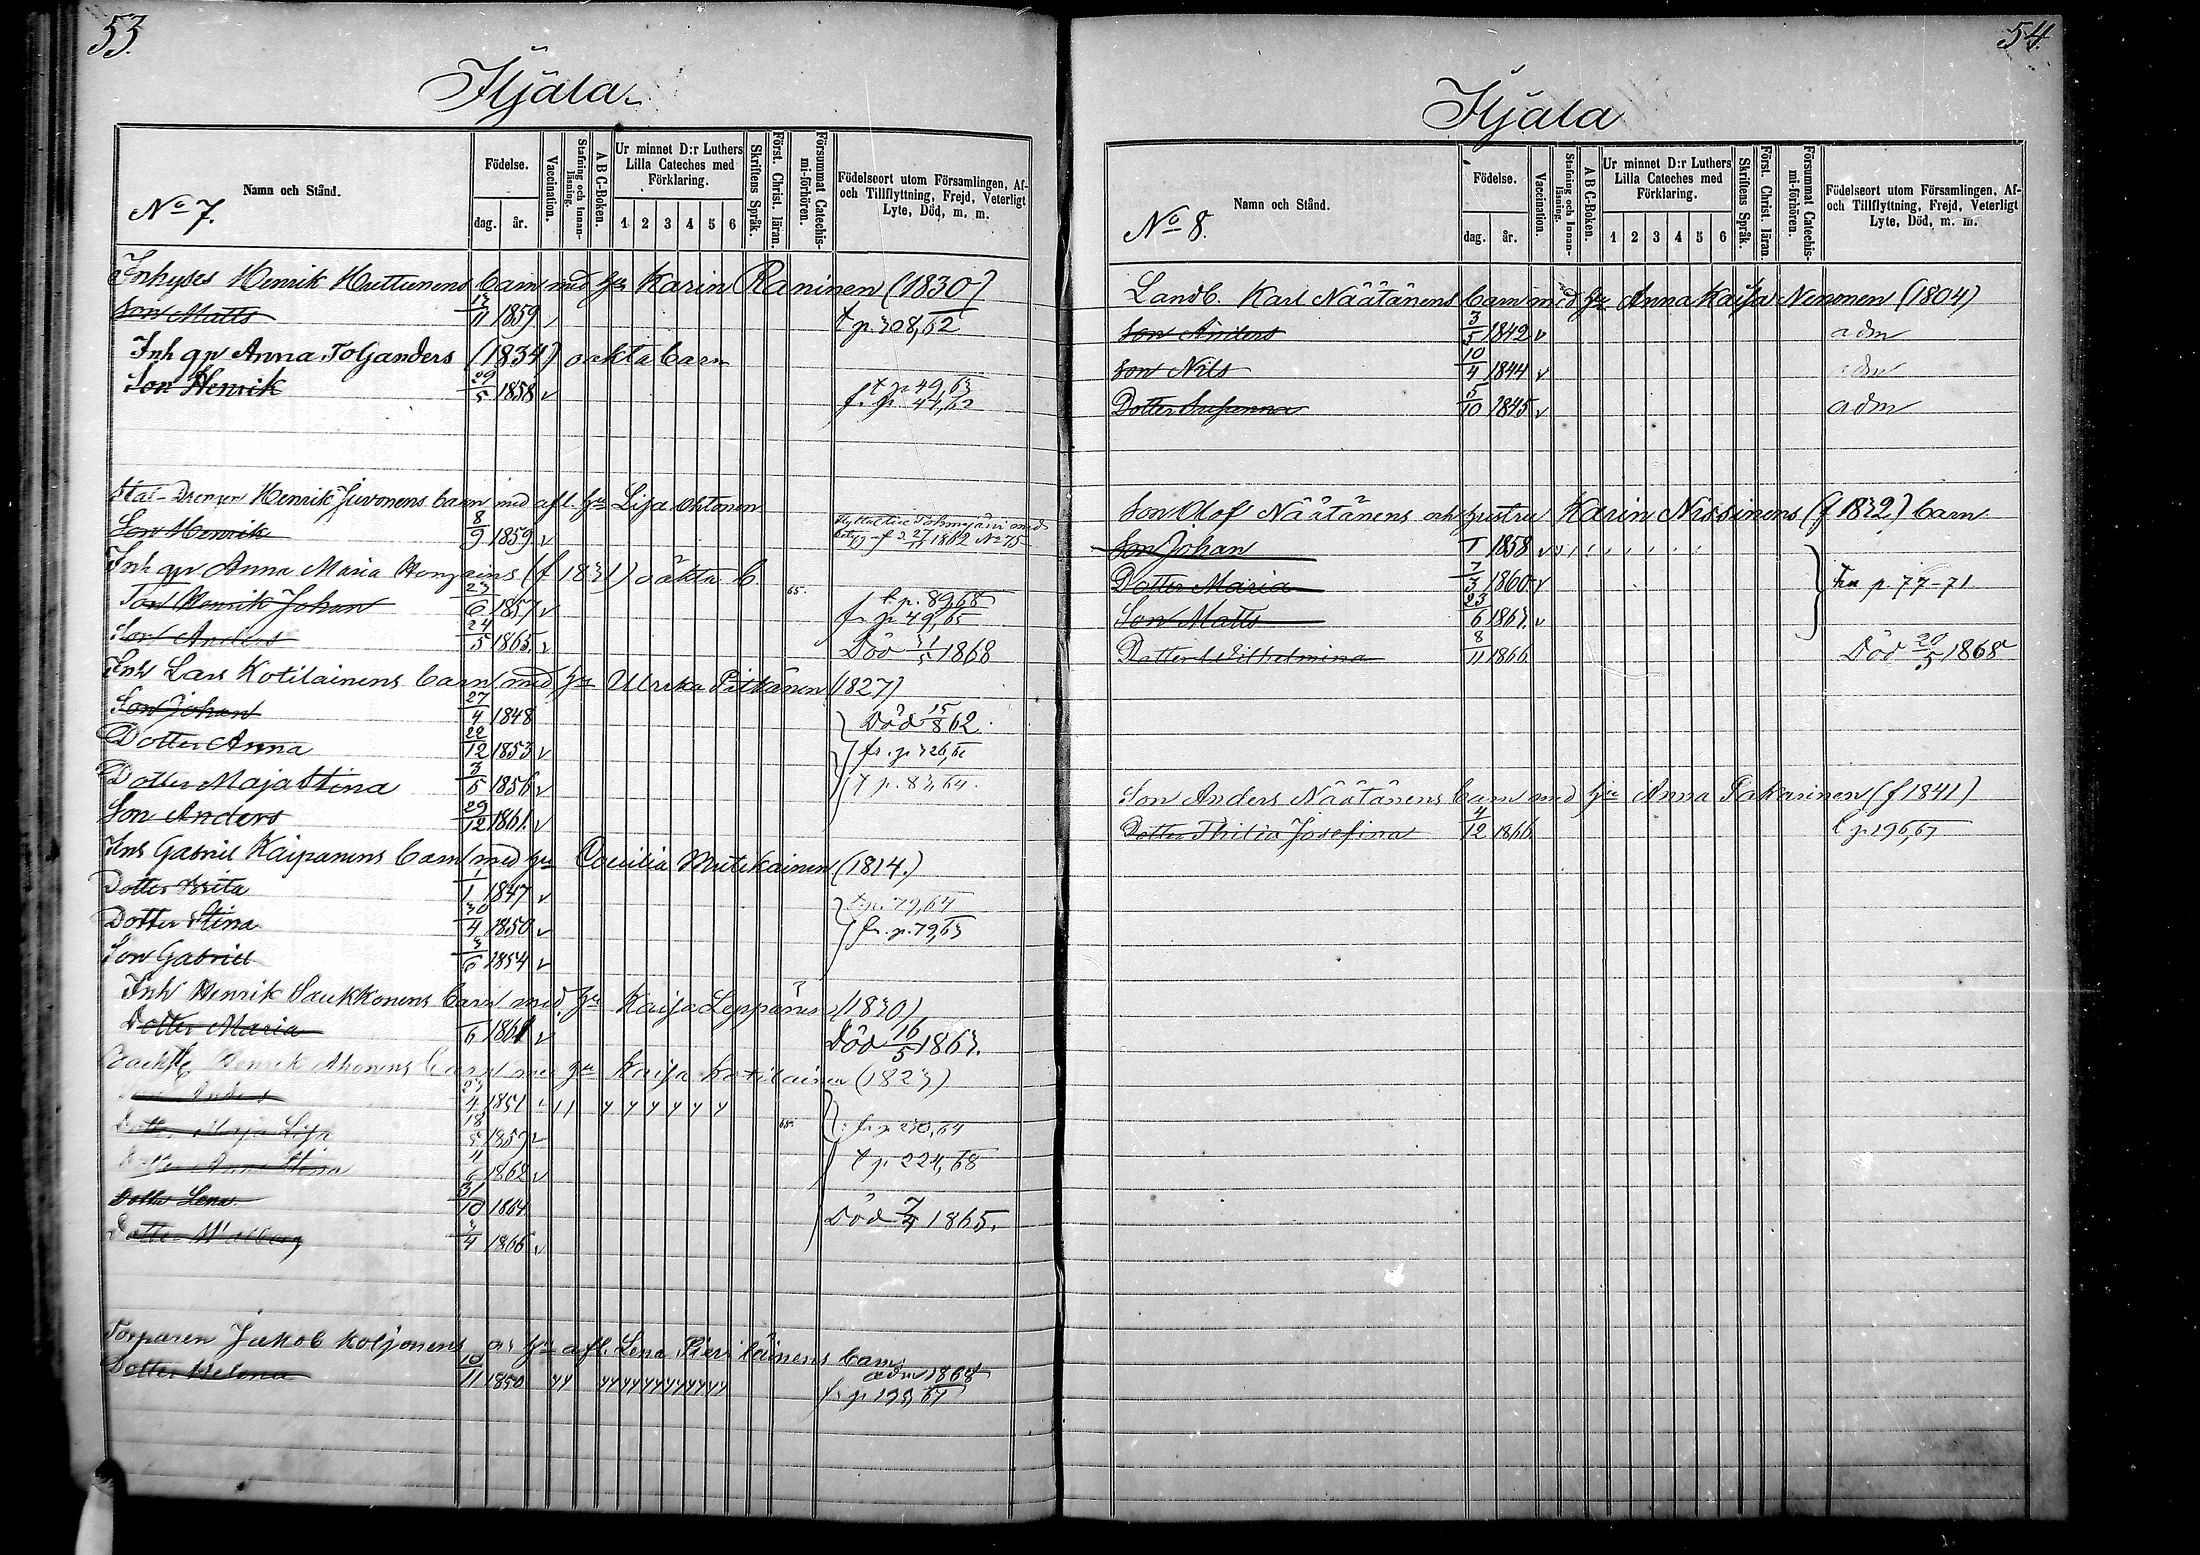 53.
Hjäla
Namn och Stånd.
No 7.
Födelse.
dag. år.
Vaccination.
Stafning och Innan-läsning.
A B C-Boken.
Ur minnet D:r Luthers Lilla Cateches med Förklaring.
1 2 3 4 5 6
Skriftens Språk.
Först. Christ. läran.
Försummat Catechis-mi-förhören.
Födelseort utom Församlingen, Af- och Tillflyttning, Frejd, Veterligt Lyte, Död, m. m.
Inhyses Henrik Huttunens barn med hu Karin Raninen (1830)
Son Matts 13/11 1859 t p. 308,62
Inh qp Anna Toljanders (1834) oäkta barn
Son Henrik 29/5 1858 v t p 49,63
f. p. 44,62
Henrik Juvonens barn med afl. hu Lisa Ohtonen
Son Henrik 8/9 1859 v 27/11 1862 No 75
Inh qp Anna Maria (f 1831) oäkta b.
Son Henrik Johan 23/6 1857 v 65. t. p. 89,68
fr p 49,65
Son Anders 24/5 1865 v Död 31/5 1868
Inh Lars Kotilainens barn med hu Ulrika Pitkänen (1827)
Son Johan 27/4 1848 Död 15/8 62.
Dotter Anna 22/12 1853 v fr. p 326,62
Dotter Maja Stina 3/5 1856 v t p. 83,64.
Son Anders 29/12 1861. v
Inh Gabriel Kaipanens barn med hu Caecilia Mutikainen (1814.)
Dotter Brita 1/1 1847 v t. p. 79,64
Dotter Stina 30/4 1850 v fr. p. 79,63
Son Gabriel 3/6 1854 v
Inh Henrik Saukkonens barn med hu Kaisa Leppänen (1830)
Dotter Maria 7/6 1861 v Död 16/5 1863.
Henrik Ahonens barn med hu Kaisa Kotilainen (1823)
Son Anders 23/4 1851 fr p 230,64
Dotter Maja Lisa 18/5 1859 v 68. t p. 224,68
Dotter Anna Stina 4/6 1862 v
Dotter Lena 31/10 1864 Död 7/4 1865.
Dotter Walborg 3/4 1866 v
Torparen Jakob Koljonens o. hu afl. Lena Pieriläinens barn
Dotter Helena 10/11 1850 adm 1868
fr p 193,67
54.
Hjäla
Namn och Stånd.
No 8.
Födelse.
dag. år.
Vaccination.
Stafning och Innan-läsning.
A B C-Boken.
Ur minnet D:r Luthers Lilla Cateches med Förklaring.
1 2 3 4 5 6
Skriftens Språk.
Först. Christ. läran.
Försummat Catechis-mi-förhören.
Födelseort utom Församlingen, Af- och Tillflyttning, Frejd, Veterligt Lyte, Död, m. m.
Landb. Karl Näätänens barn med hu Anna Kaisa Nenonen (1804)
Son Anders 3/5 1842 v adm
Son Nils 10/4 1844 v adm
Dotter Susanna 5/10 1845 v adm
Son Olof Näätänens och hustru Karin Nissinens (f 1832) barn
Son Johan 1 1858 v
Dotter Maria 7/3 1860 v fr p. 77-71
Son Matts 23/6 1863. v
Dotter Wilhelmina 8/11 1866 Död 20/5 1868
Son Anders Näätänens barn med hu Anna Pakarinen (f 1841)
Dotter Josefina 4/12 1866 t p 196,67